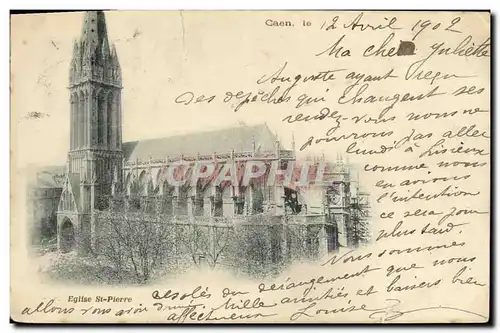 Caen, le 12 Avril 1902
Ma chère Juliette
Auguste ayant reçu
des dépêches qui changent ses
rendez-vous nous ne
pourrons pas aller
lundi à Lisieux
comme nous
en avions
l'intention
ce sera pour
plus tard.
Nous sommes
désolés du dérangement que nous
allons vous avoir donné. Mille amitiés et baisers bien
affectueux Louise
CPARAMA
Eglise St-Pierre